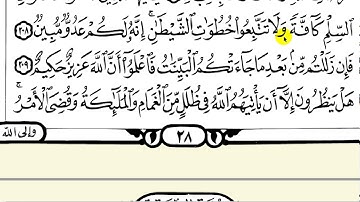 ٱلسِّلۡمِ كَآفَّةٗ وَلَا تَتَّبِعُواْ خُطُوَٰتِ ٱلشَّيۡطَٰنِۚ إِنَّهُۥ لَكُمۡ عَدُوّٞ مُّبِينٞ ٢٠٨
فَإِن زَلَلۡتُم مِّنۢ بَعۡدِ مَا جَآءَتۡكُمُ ٱلۡبَيِّنَٰتُ فَٱعۡلَمُوٓاْ أَنَّ ٱللَّهَ عَزِيزٌ حَكِيمٌ ٢٠٩
هَلۡ يَنظُرُونَ إِلَّآ أَن يَأۡتِيَهُمُ ٱللَّهُ فِي ظُلَلٖ مِّنَ ٱلۡغَمَامِ وَٱلۡمَلَٰٓئِكَةُ وَقُضِيَ ٱلۡأَمۡرُۚ
وإلى الله
٢٨